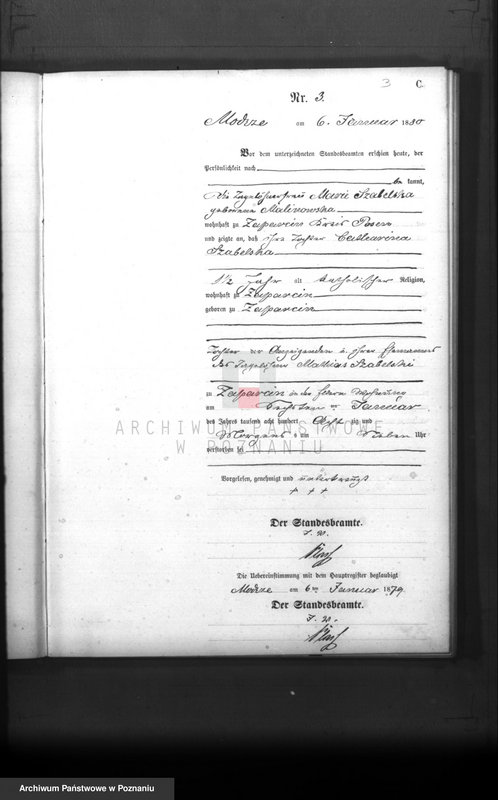 3 C.
Nr. 3.
Modrze am 6. Januar 1880
Vor dem unterzeichneten Standesbeamten erschien heute, der
Persönlichkeit nach
be kannt,
die Tagelöhnerfrau Marie Szabelska
geborene Malinowska
wohnhaft zu Zaparcin Kreis Posen
und zeigte an, daß ihre Tochter Catharina
Szabelska
1½ Jahr alt katholischer Religion,
wohnhaft zu Zaparcin
geboren zu Zaparcin
Tochter der Anzeigenden u. ihres Ehemannes
des Tagelöhners Mathias Szabelski
zu Zaparcin in der Wohnung
am sechsten Januar
des Jahres tausend acht hundert Acht zig und
Morgens um sieben Uhr
verstorben sei
Vorgelesen, genehmigt und unterkreuzt
+ + +
Der Standesbeamte.
Die Uebereinstimmung mit dem Hauptregister beglaubigt
Modrze am 6ten Januar 1879
Der Standesbeamte.
ARCHIWUM PAŃSTWOWE
W POZNANIU
Archiwum Państwowe w Poznaniu